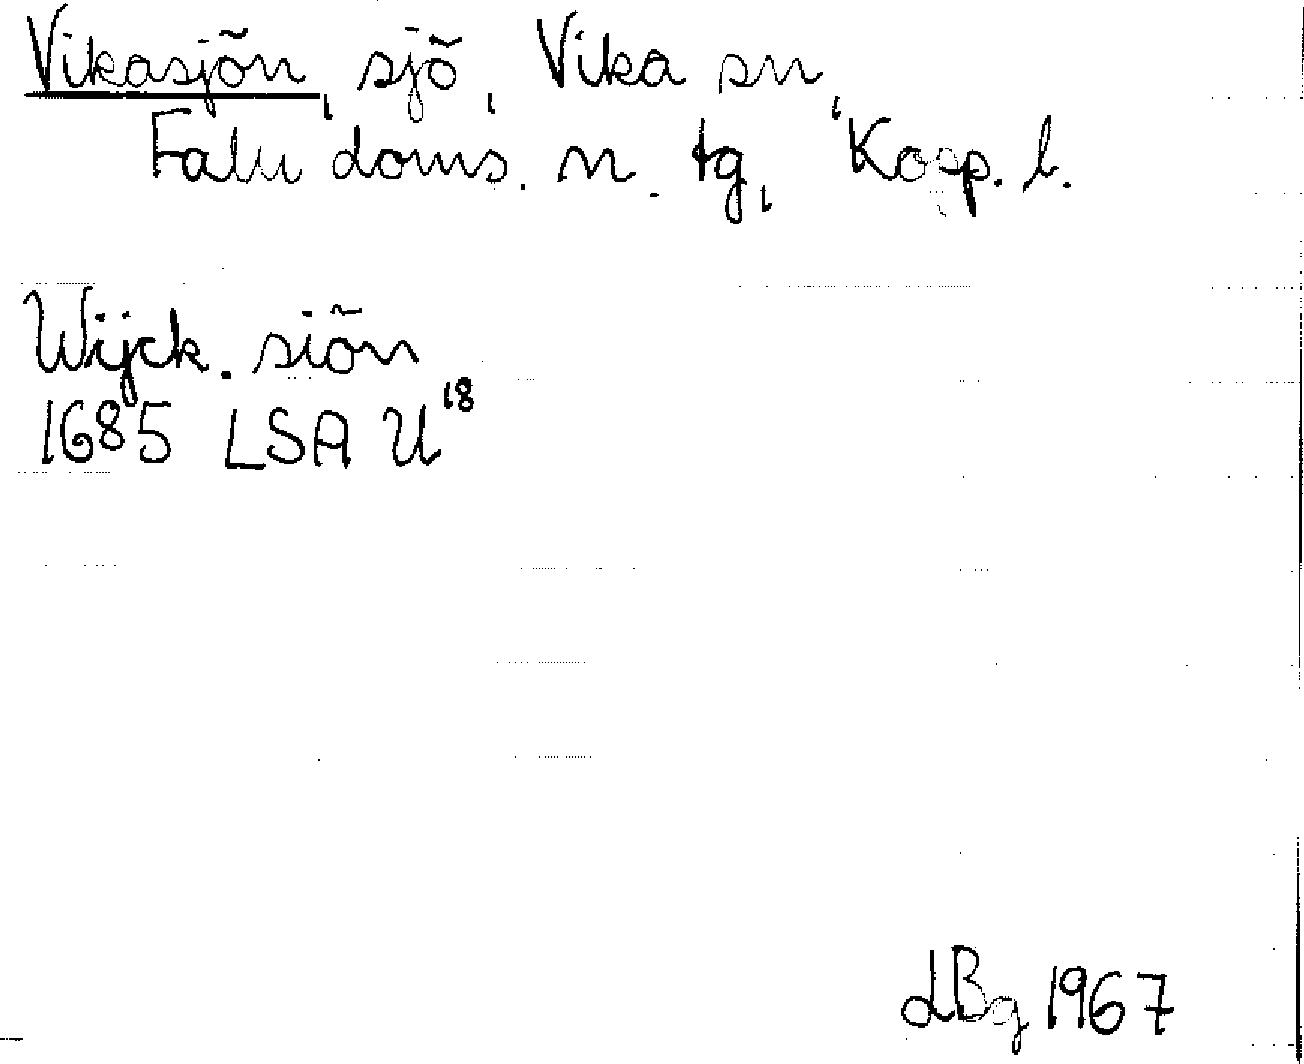 Vikasjön, sjö, Vika sn,
Falu doms. n. tg, Kopp. l.
Wijck. siön
1685 LSA U18
LBg 1967